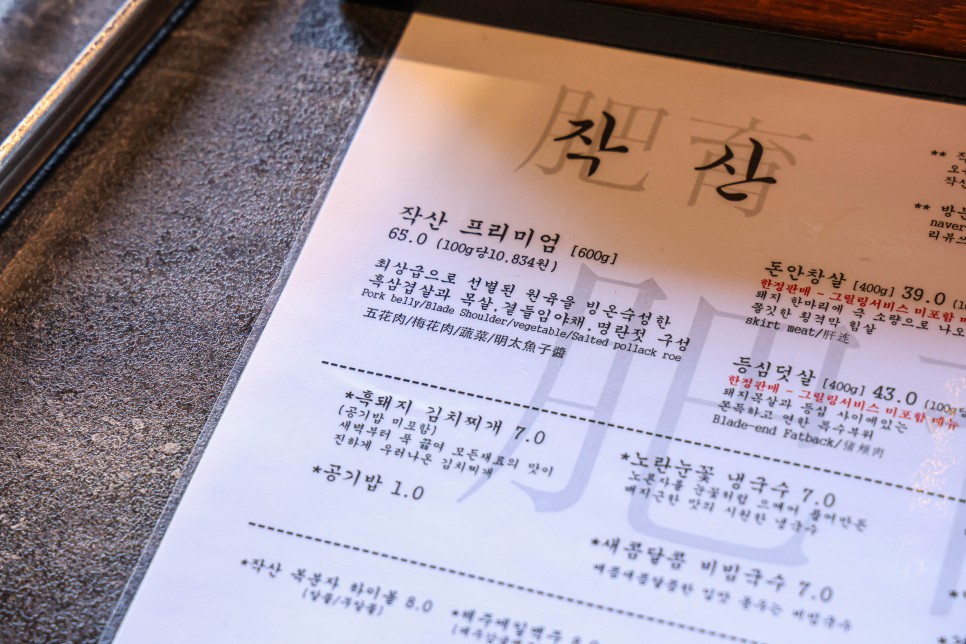 肥育
작산
** 작
오
작산
** 방문
naver
리뷰쓰
작산 프리미엄 [600g]
65.0 (100g당10.834원)
최상급으로 선별된 원육을 방온숙성한
흑삼겹살과 목살,곁들임야채.명란젓 구성
Pork belly/Blade Shoulder/vegetable/Salted pollack roe
五花肉/梅花肉/蔬菜/明太魚子醬
돈안창살 [400g] 39.0
한정판매 - 그릴링서비스 미포함 메
돼지 한마리에 극 소량으로 나오
쫄깃한 횡격막 힘살
skirt meat/肝连
등심덧살 [400g] 43.0 (100g당
한정판매 - 그릴링서비스 미포함 메뉴
돼지목살과 등심 사이에있는
쫀득하고 연한 목수부위
Blade-end Fatback/猪颊肉
肥
*흑돼지 김치찌개 7.0
(공기밥 미포함)
새벽부터 푹 끓여 모든재료의 맛이
진하게 우러나온 김치찌개
*공기밥 1.0
*노란눈꽃 냉국수 7.0
노른자를 눈꽃처럼 으깨어 풀어만든
매지근한 맛의 시원한 냉국수
*새콤달콤 비빔국수 7.0
매콤새콤달콤한 입맛 돋우는 비빔국수
*작산 복분자 하이볼 8.0
(달콤/무달콤)